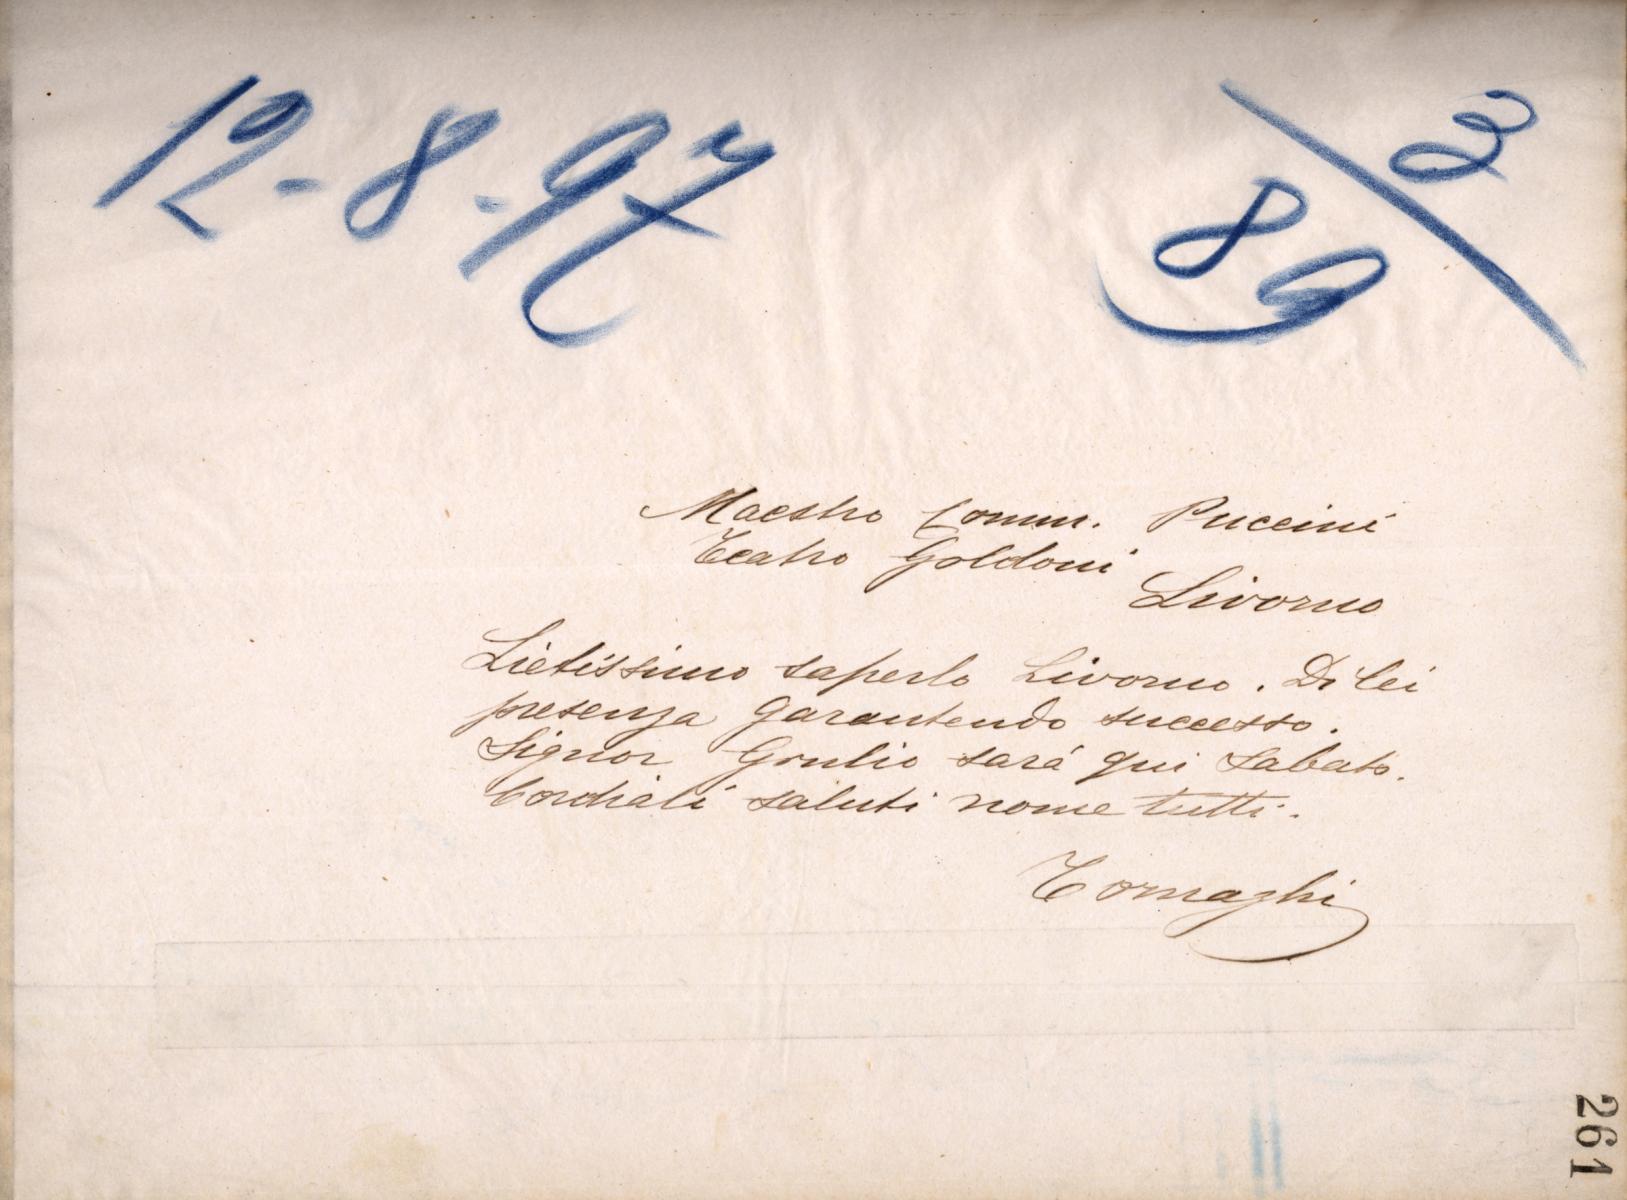 12-8-97
3/89
Maestro Comm. Puccini
Teatro Goldoni
Livorno
Lietissimo saperlo Livorno. Di lei
presenza garantendo successo.
Signor Giulio sará qui sabato.
Cordiali saluti nome tutti.
Tornaghi
261